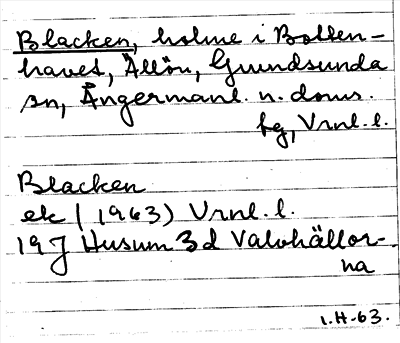 Blacken, holme i Botten-
havet, Ällön, Grundsunda
sn, Ångermanl. n. doms.
fg, Vrnl. l.
Blacken
ek (1963) Vrnl. l.
19J Husum 3d Valvhällor-
na
1.H-63.